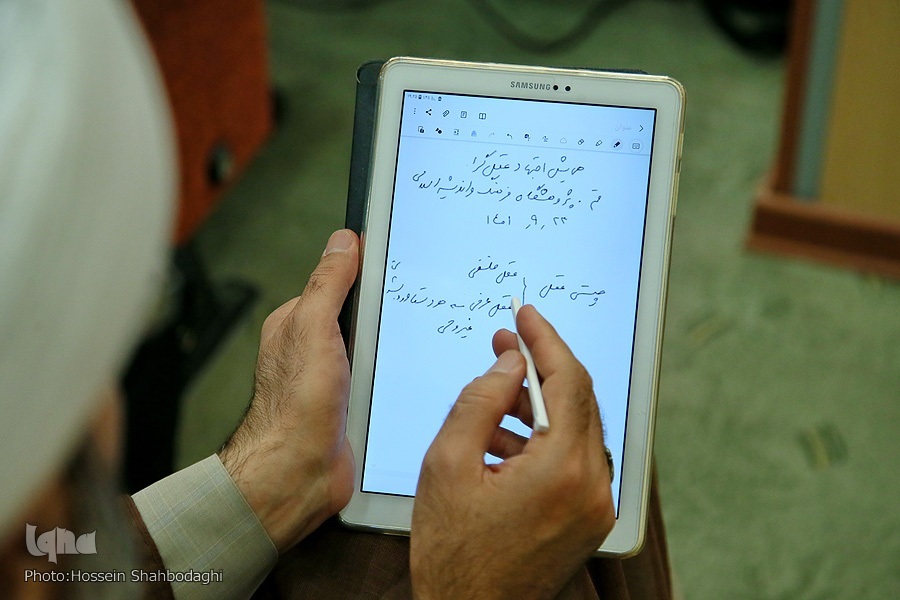 SAMSUNG
عنوان
همایش اجتهاد عقل‌گرا
قم. پژوهشگاه فرهنگ و اندیشه اسلامی
۱۴۰۱ ٫۹ ٫۲۳
چیستی عقل
عقل فلسفی
عقل عرفی
غیروحی
iqna
Photo:Hossein Shahbodaghi